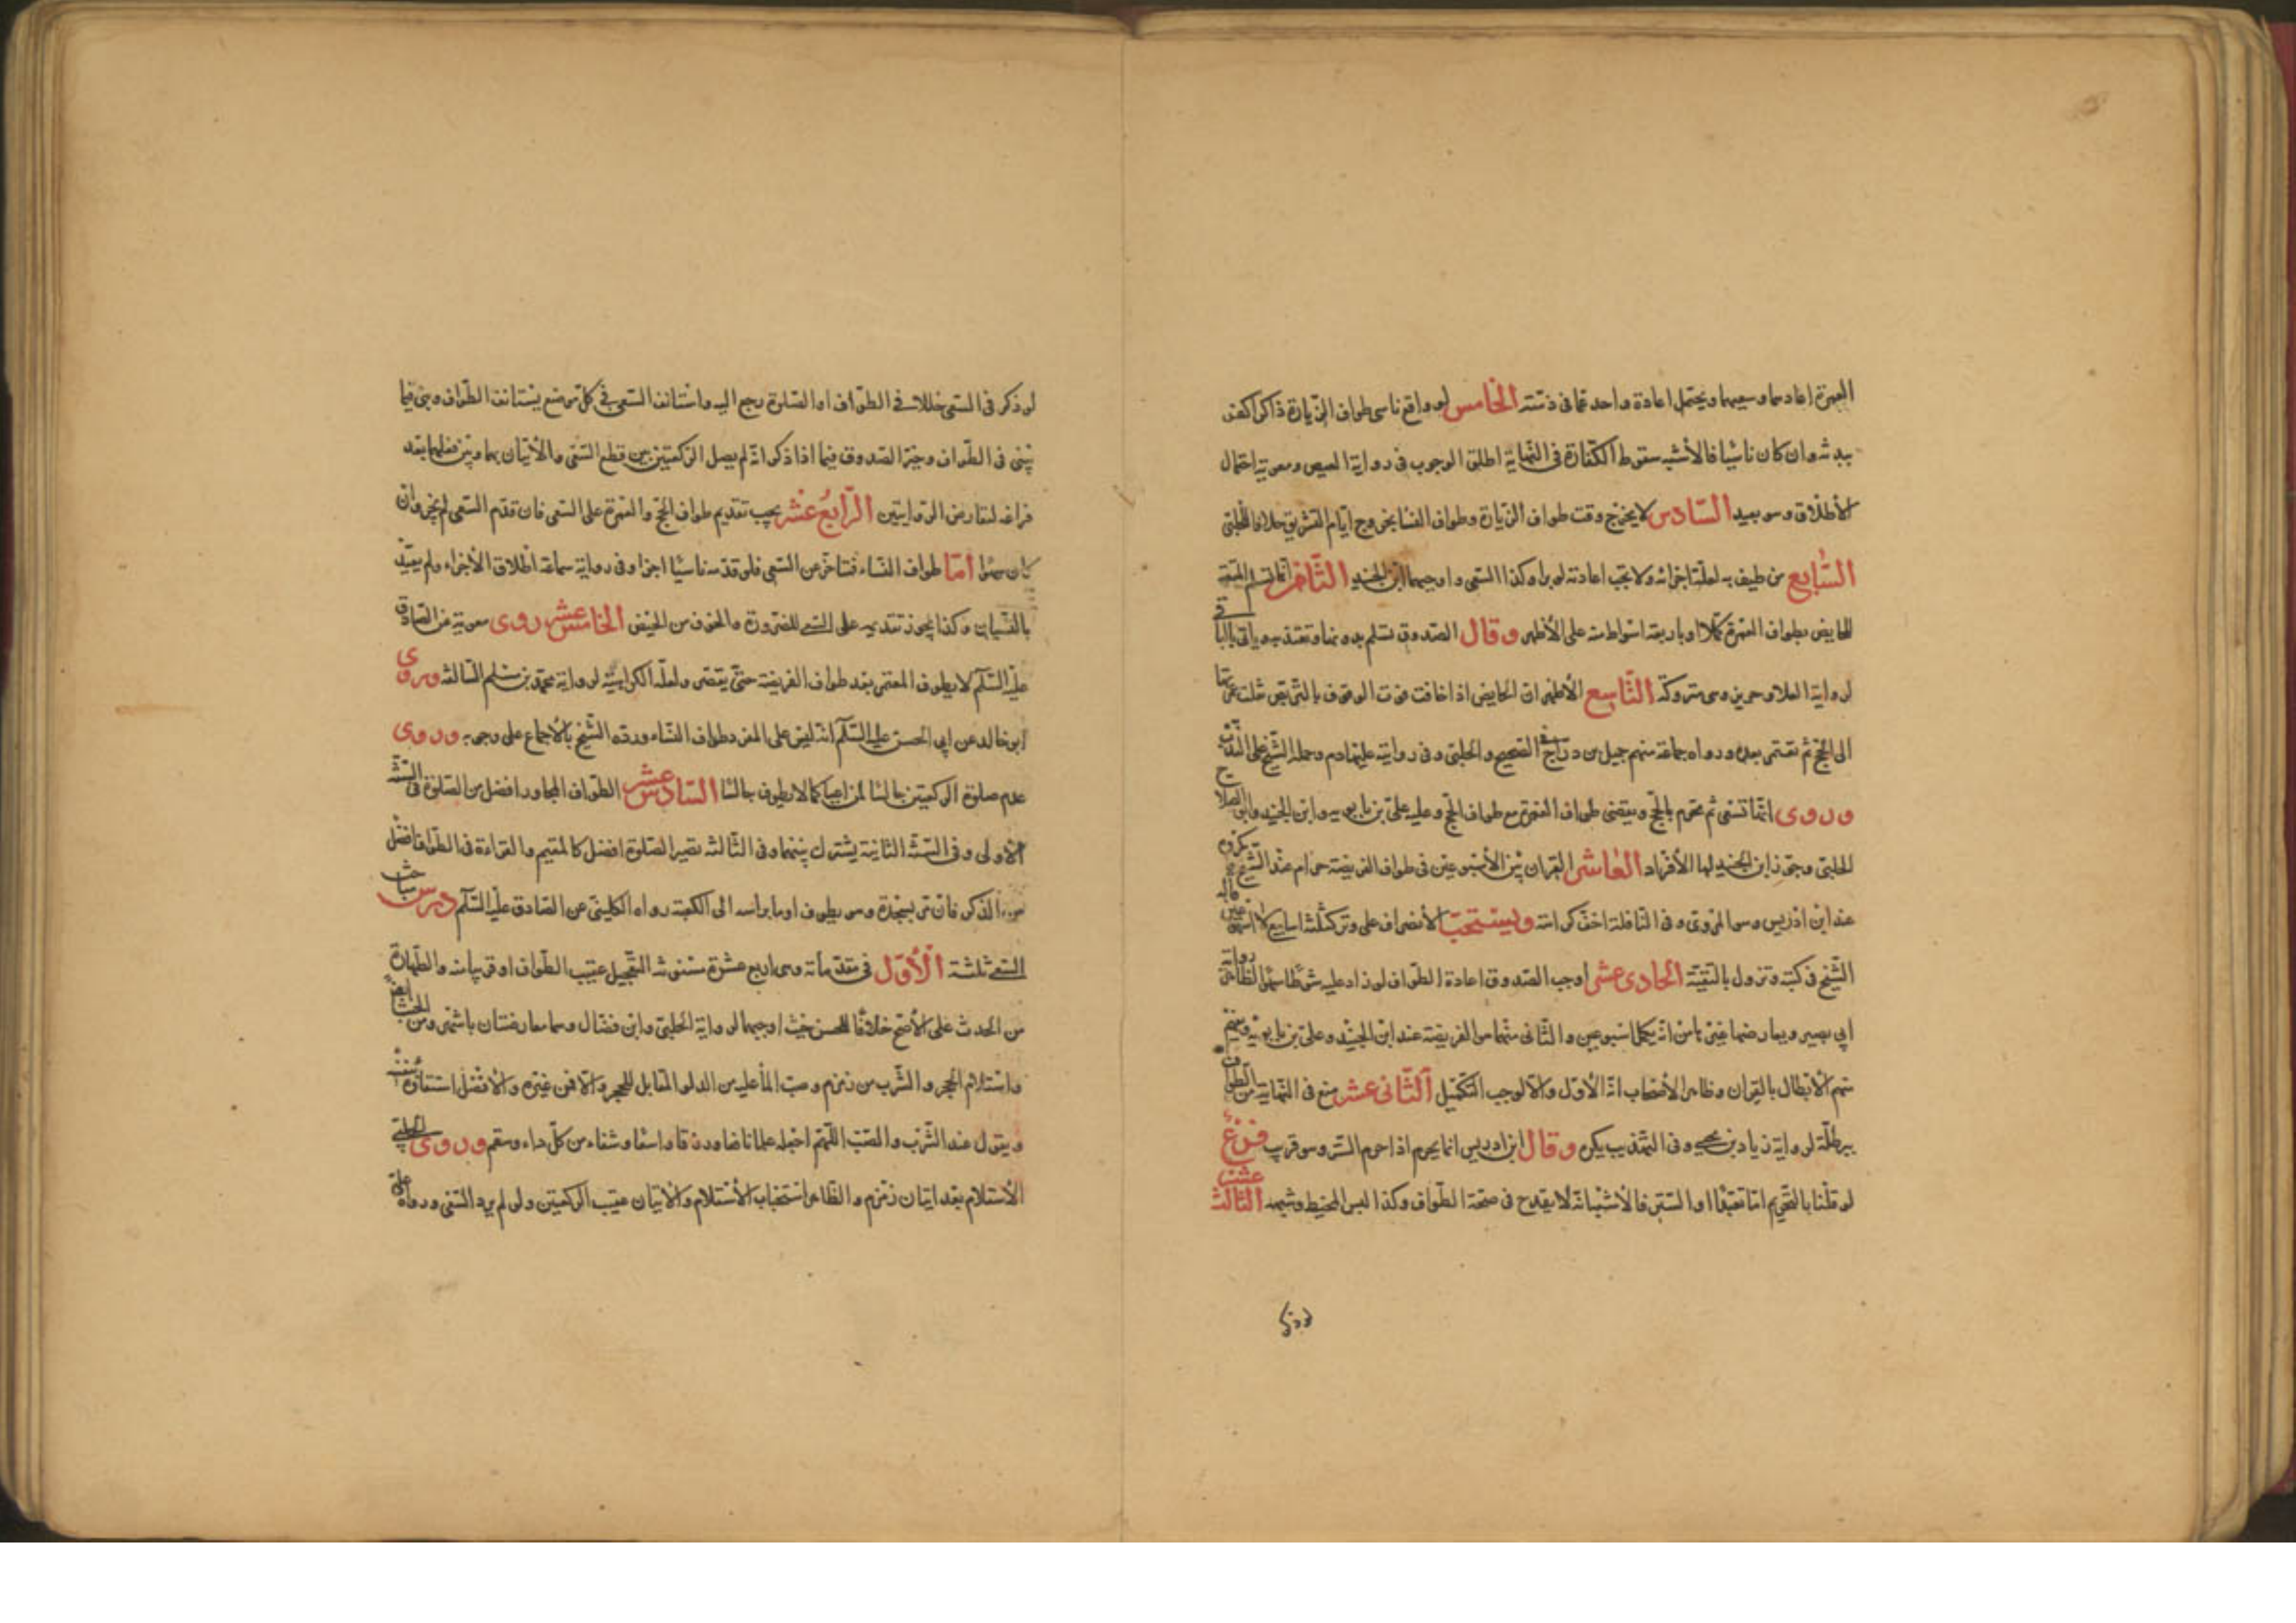 العمرة اعادهما وسعيهما ويحتمل اعادة واحدة عما فى ذمته الخامس لو واقع ناسى طواف الزيارة ذاكرا كفر
ببدنة وان كان ناسيا فالأشبه سقوط الكفارة فى النهاية اطلق الوجوب فى رواية العيص ومعوية احتمال
الأطلاق وهو بعيد السادس لا يخرج وقت طواف الزيارة وطواف النسا بخروج ايام التشريق خلافا للحلبى
السابع من طيف به لعلة اجزائه ولا يجب اعادته لو برا وكذا السعى واوجبهما ابن الجنيد الثامن انما تسلم المتعة
للحايض بطواف العمرة كملا او باربعة اشواط منه على الأظهر وقال الصدوق تسلم بدونها وتعتد به وياتى بالباقى
لرواية العلا وحريز وهى متروكة التاسع الأظهر ان الحايض اذا خافت فوت الوقوف بالتربص عدلت عن عمرتها
الى الحج ثم تعتمر بعده ورواه جماعة منهم جميل بن دراج فى الصحيح والحلبى وفى رواية عليها دم وحمله الشيخ على الندب
وروى انها تسعى ثم تحرم بالحج ويقضى طواف العمرة مع طواف الحج وعليه على بن بابويه وابن الجنيد وابو الصلاح
الحلبى وجوز ابن الجنيد لها الأفراد العاشر القران بين الأسبوعين فى طواف الفريضة حرام عند الشيخ مكروه
عند ابن ادريس وهو المروى وفى النافلة اخف كراهة ويستحب الأنصراف على وتر كثلثة اسابيع لا اسبوعين قاله
الشيخ فى كتبه وتزول بالتقية الحادى عشر اوجب الصدوق اعادة الطواف لو زاد عليه شوطا سهوا لظاهر رواية
ابى بصير ويعارضها غيرها من انه يكمل اسبوعين والثانى منهما هو الفريضة عند ابن الجنيد وعلى بن بابويه ومنع
منهم الأبطال بالقران وظاهر الأصحاب انه الأول والا لوجب التكميل الثانى عشر منع فى النهاية من الطواف
ببرطلة لرواية زياد بن يحيى وفى التهذيب يكره وقال ابن ادريس انما يحرم اذا حرم الستر وهو قريب فرع
لو قلنا بالتحريم اما تعبدا او للستر فالأشبه انه لا يقدح فى صحة الطواف وكذا لبس المخيط وشبهه الثالث عشر
لو ذكر فى السعى خللا فى الطواف او الصلوة رجع اليه واستانف السعى فى كل موضع يستانف الطواف وبنى فيما
يبنى فى الطواف وخير الصدوق فيما اذا ذكر انه لم يصل الركعتين بين قطع السعى والأتيان بهما وبين فعلهما بعد
فراغه لتعارض الروايتين الرابع عشر يجب تقديم طواف الحج والعمرة على السعى فان قدم السعى لم يجز وان
كان سهوا اما طواف النساء فمتاخر عن السعى فلو قدمه ناسيا اجزا وفى رواية سماعة اطلاق الأجزاء ولم يقيد
بالنسيان وكذا يجوز تقديمه على السعى للضرورة والخوف من الحيض الخامس عشر روى معوية عن الصادق
عليه السلام لا يطوف المعتمر بعد طواف الفريضة حتى يقصر ولعله الكراهية لرواية محمد بن مسلم السالفة وروى
ابو خالد عن ابى الحسن عليه السلام انه ليس على المفرد طواف النساء ورده الشيخ بالأجماع على وجوبه وروى
عدم صلوة الركعتين جالسا لمن اعيا كما لا يطوف جالسا السادس عشر الطواف للمجاور افضل من الصلوة فى السنة
الأولى وفى السنة الثانية يشترك بينهما وفى الثالثة يصير الصلوة افضل كالمقيم والقراءة فى الطواف افضل
من الذكر فان مر بسجدة وهو يطوف اوما براسه الى الكعبة رواه الكلينى عن الصادق عليه السلام درس مباحث
السعى ثلثة الأول فى مقدماته وهى اربع عشرة مسنونة التعجيل عقيب الطواف او قريبا منه والطهارة
من الحدث على الأصح خلافا للحسن حيث اوجبها لرواية الحلبى وابن فضال وهما معارضتان باشهر ومن الخبث ايضا
واستلام الحجر والشرب من زمزم وصب الماء عليه من الدلو المقابل للحجر والا فمن غيره والأفضل استقاؤه بنفسه
ويقول عند الشرب والصب اللهم اجعله علما نافعا ورزقا واسعا وشفاء من كل داء وسقم وروى الحلبى
الأستلام بعد اتيان زمزم والظاهر استحباب الأستلام والأتيان عقيب الركعتين ولو لم يرد السعى ورواه على